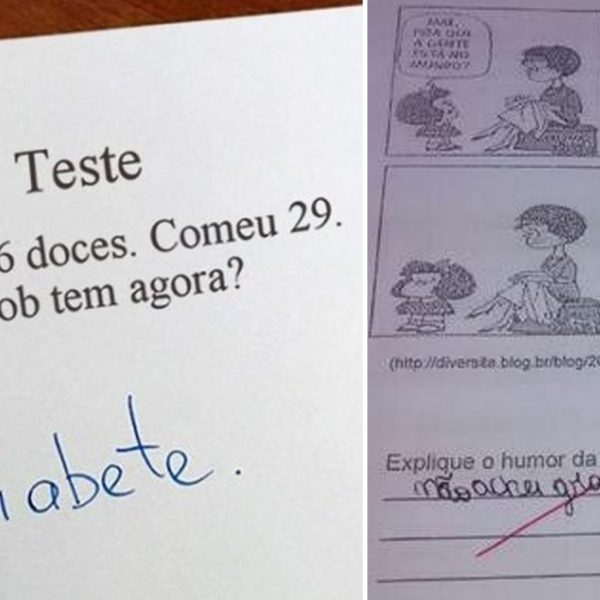 Teste
6 doces. Comeu 29.
ob tem agora?
iabete.
MÃE,
PRA QUE
A GENTE
ESTÁ NO
MUNDO?
(http://diversita.blog.br/blog/20
Explique o humor da
não achei gra